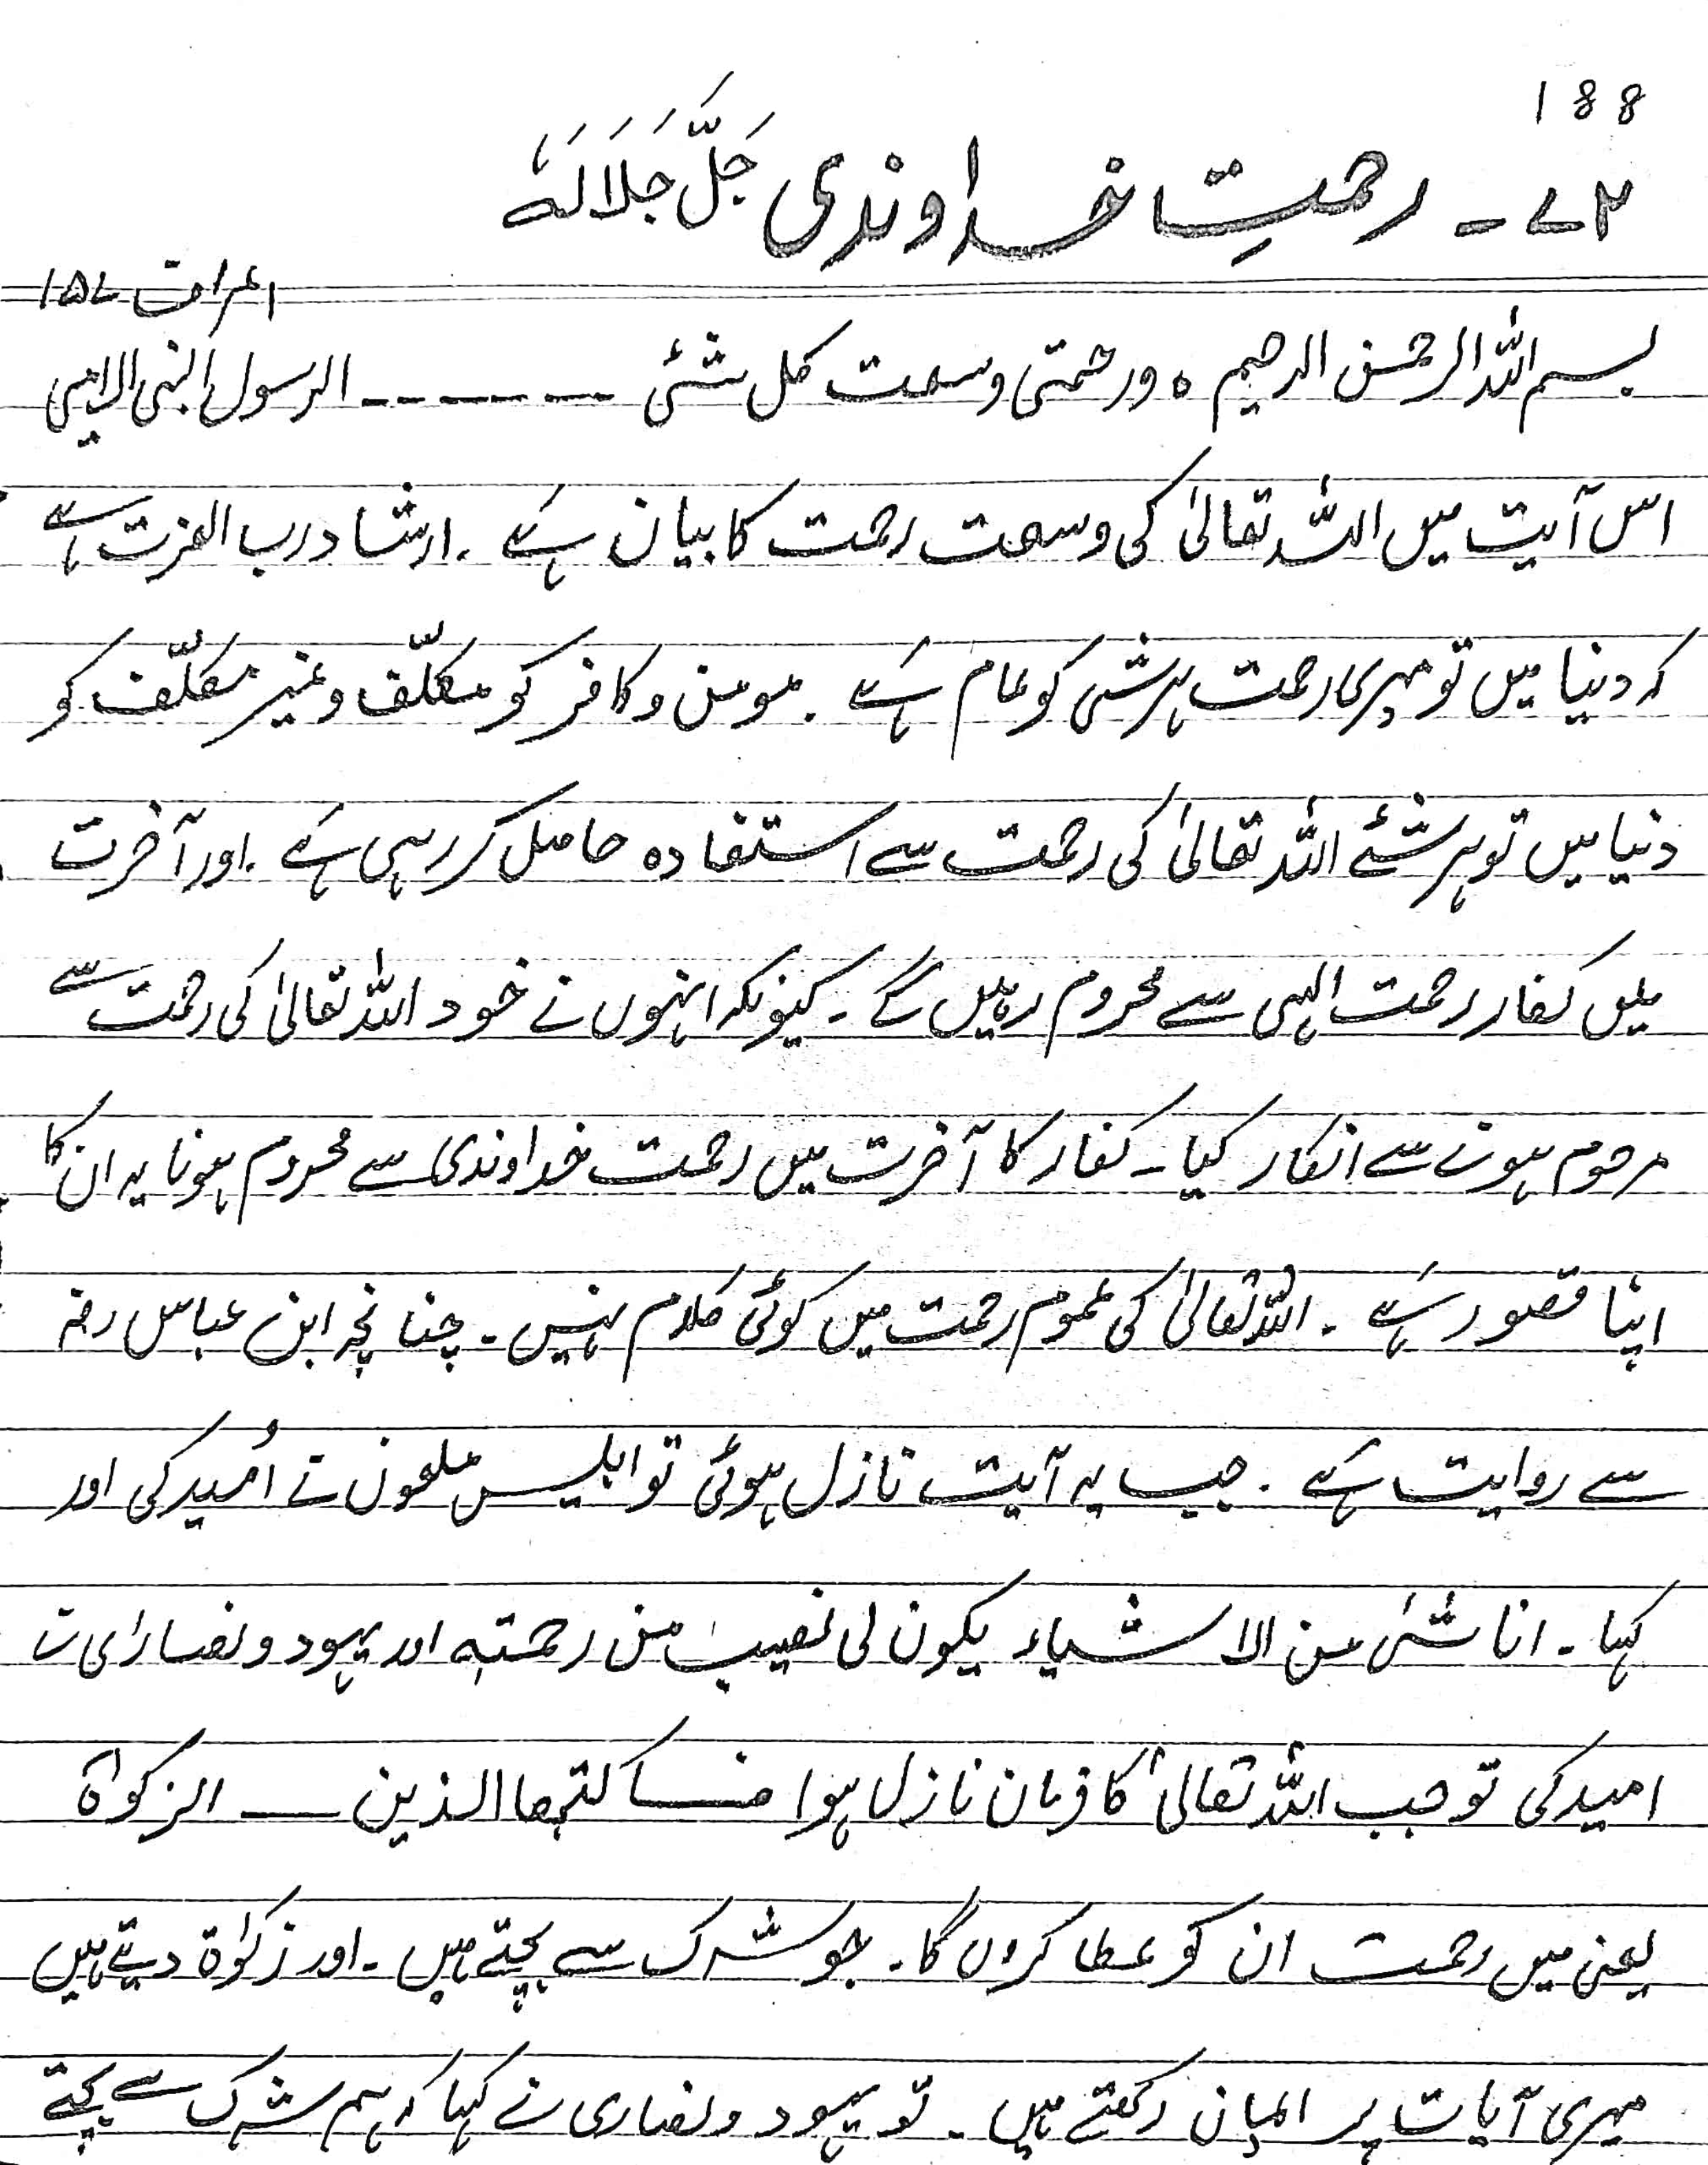 188
۷۲ - رحمتِ خداوندی جَلَّ جَلَالَہٗ
اعراف ۱۵۷
بسم اللہ الرحمن الرحیم ہ ورحمتی وسعت کل شئی ـ ـ ـ ـ ـ ـ ـ الرسول النبی الامی
اس آیت میں اللہ تعالیٰ کی وسعت رحمت کا بیان ہے ۔ ارشاد رب العزت ہے
کہ دنیا میں تو میری رحمت ہر شئی کو عام ہے ۔ مومن و کافر کو مکلّف و غیر مکلّف کو
دنیا میں تو ہر شئے اللہ تعالیٰ کی رحمت سے استفادہ حاصل کر رہی ہے ۔ اور آخرت
میں کفار رحمت الہی سے محروم رہیں گے ۔ کیونکہ انہوں نے خود اللہ تعالیٰ کی رحمت سے
مرحوم ہونے سے انکار کیا ۔ کفار کا آخرت میں رحمت خداوندی سے محروم ہونا یہ ان کا
اپنا قصور ہے ۔ اللہ تعالیٰ کی عموم رحمت میں کوئی کلام نہیں ۔ چنانچہ ابن عباس رضہ
سے روایت ہے ۔ جب یہ آیت نازل ہوئی تو ابلیس ملعون نے اُمید کی اور
کہا ۔ انا شئی من الاشیاء یکون لی نصیب من رحمتہ اور یہود و نصارای نے
امید کی تو جب اللہ تعالیٰ کا فرمان نازل ہوا فساکتبھا الذین ــــ الزکواۃ
یعنی میں رحمت ان کو عطا کروں گا ۔ جو شرک سے بچتے ہیں ۔ اور زکواۃ دیتے ہیں
میری آیات پر ایمان رکھتے ہیں ۔ تو یہود و نصاری نے کہا کہ ہم شرک سے بچتے